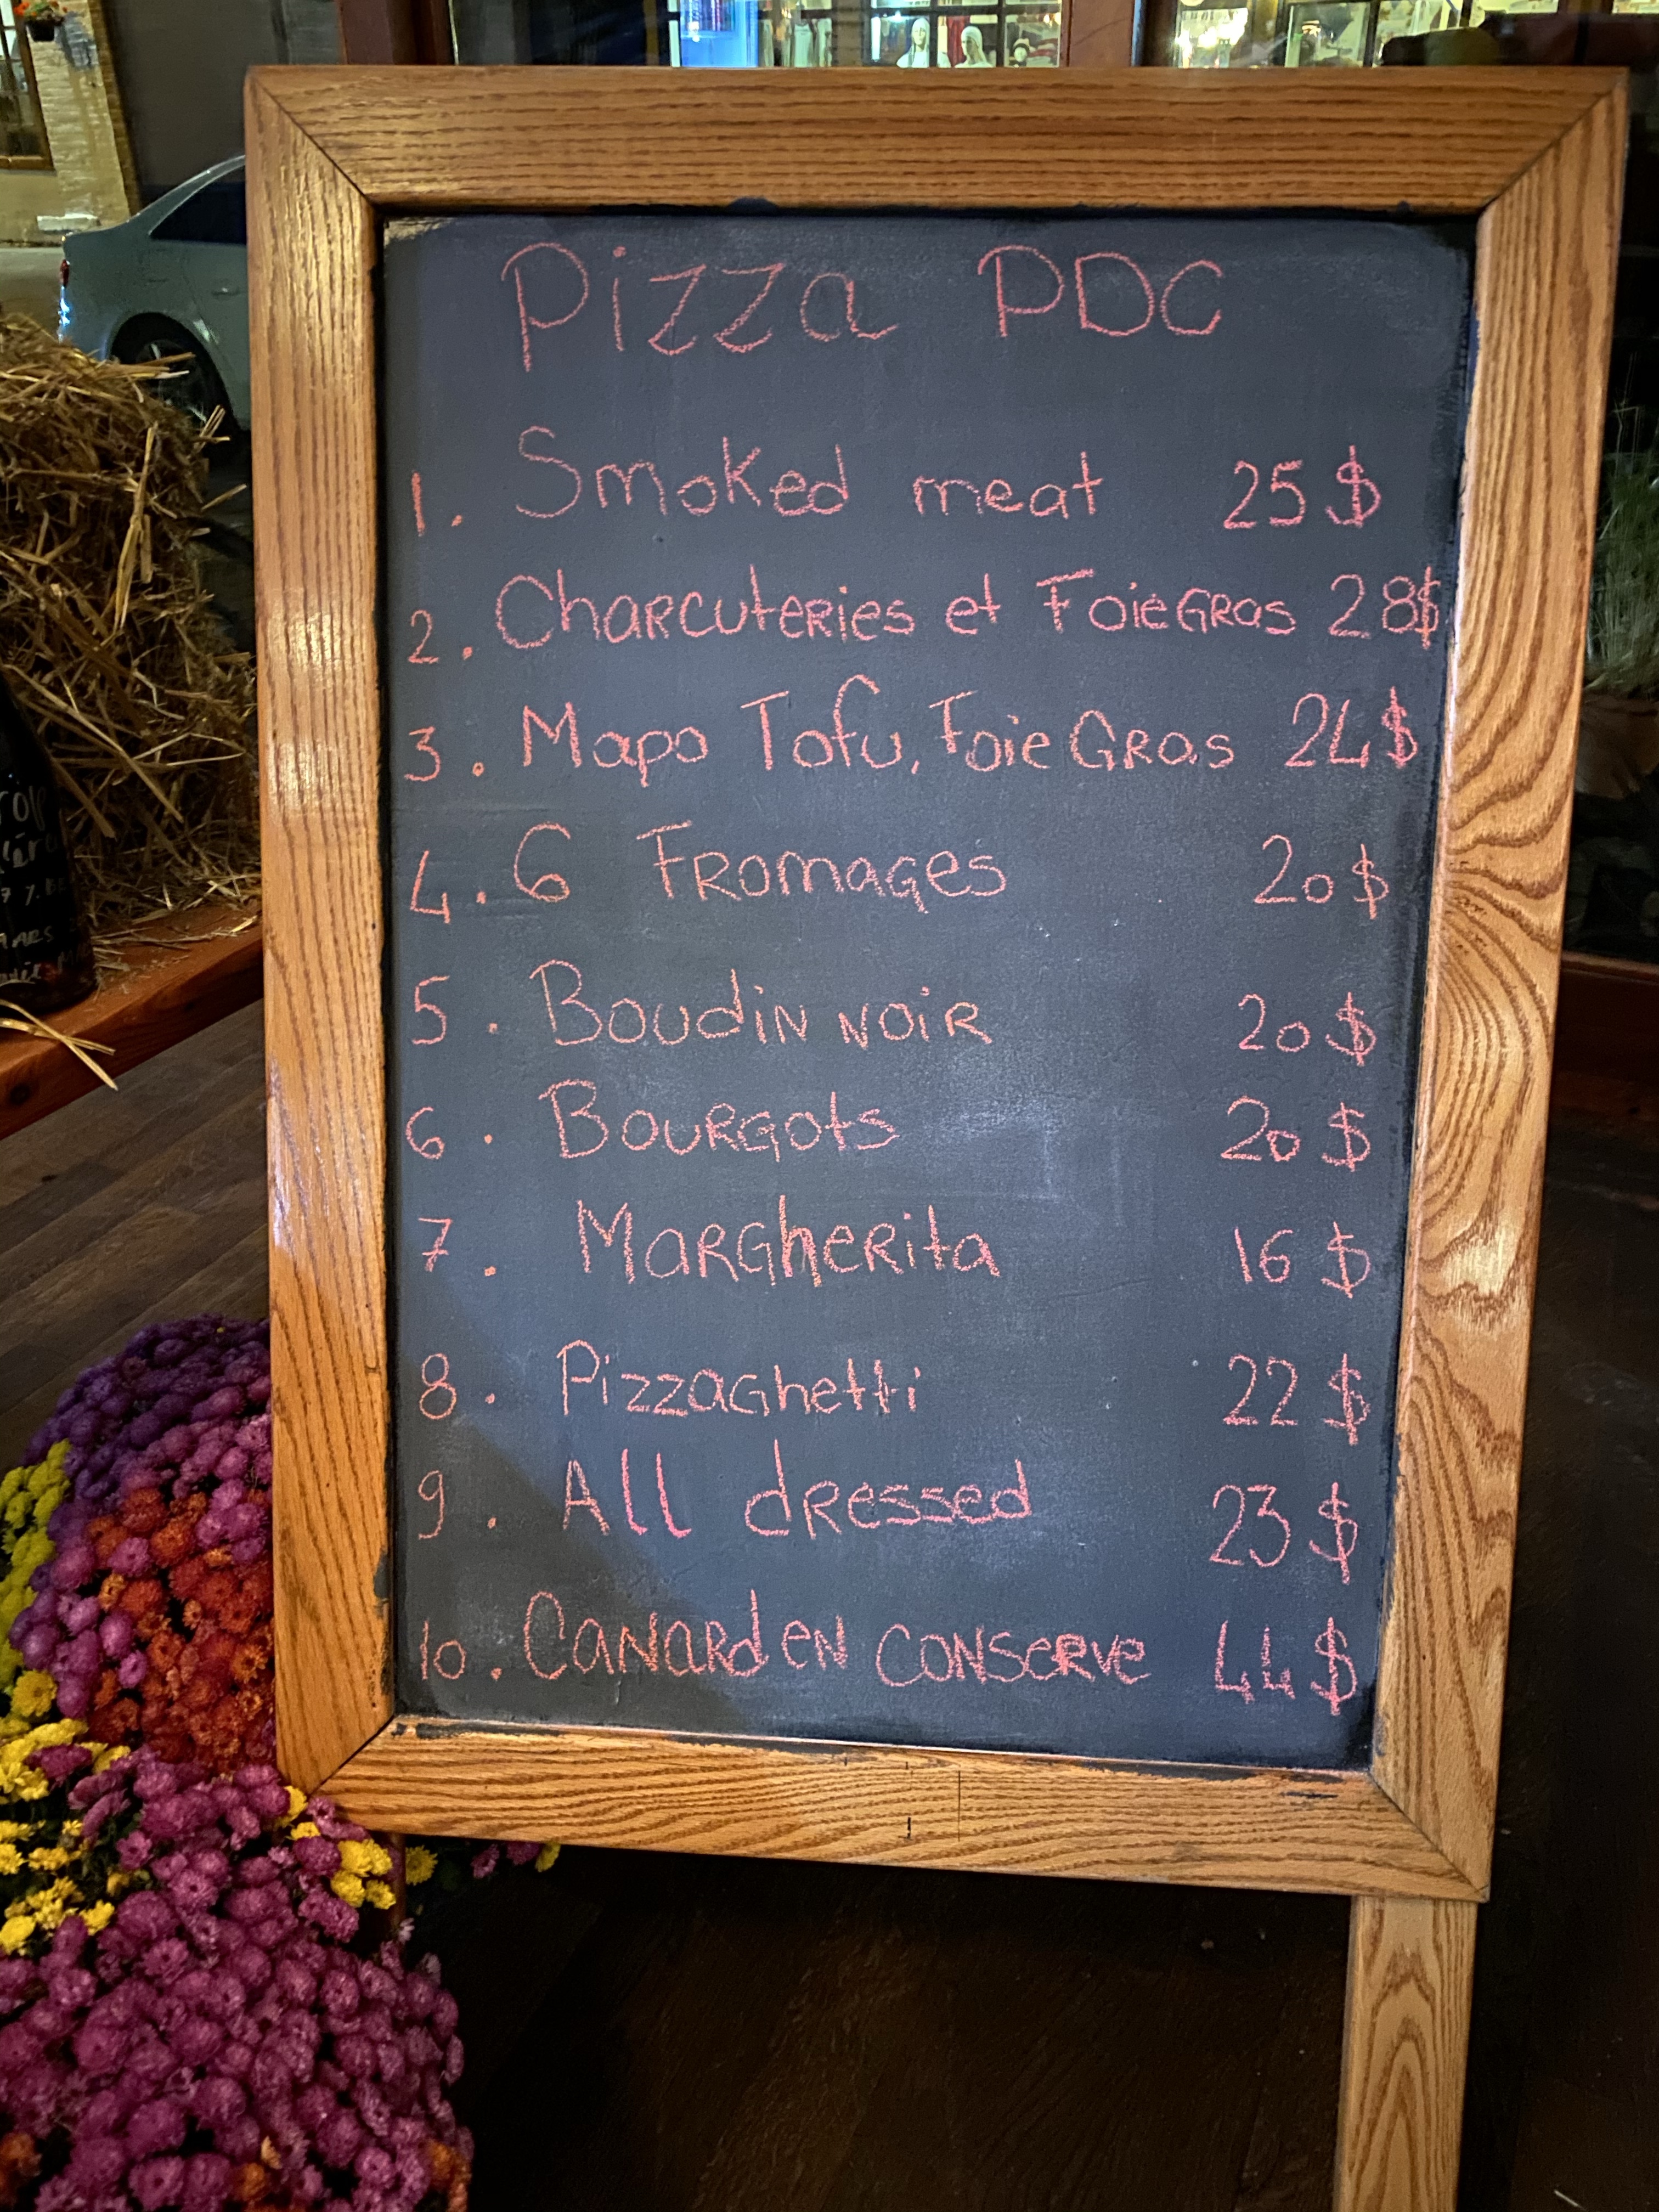 Pizza PDC
1. Smoked meat 25$
2. Charcuteries et Foie Gras 28$
3. Mapo Tofu, Foie Gras 24$
4. 6 Fromages 20$
5. Boudin noir 20$
6. Bourgots 20$
7. Margherita 16$
8. Pizzaghetti 22$
9. All dressed 23$
10. Canard en conserve 44$